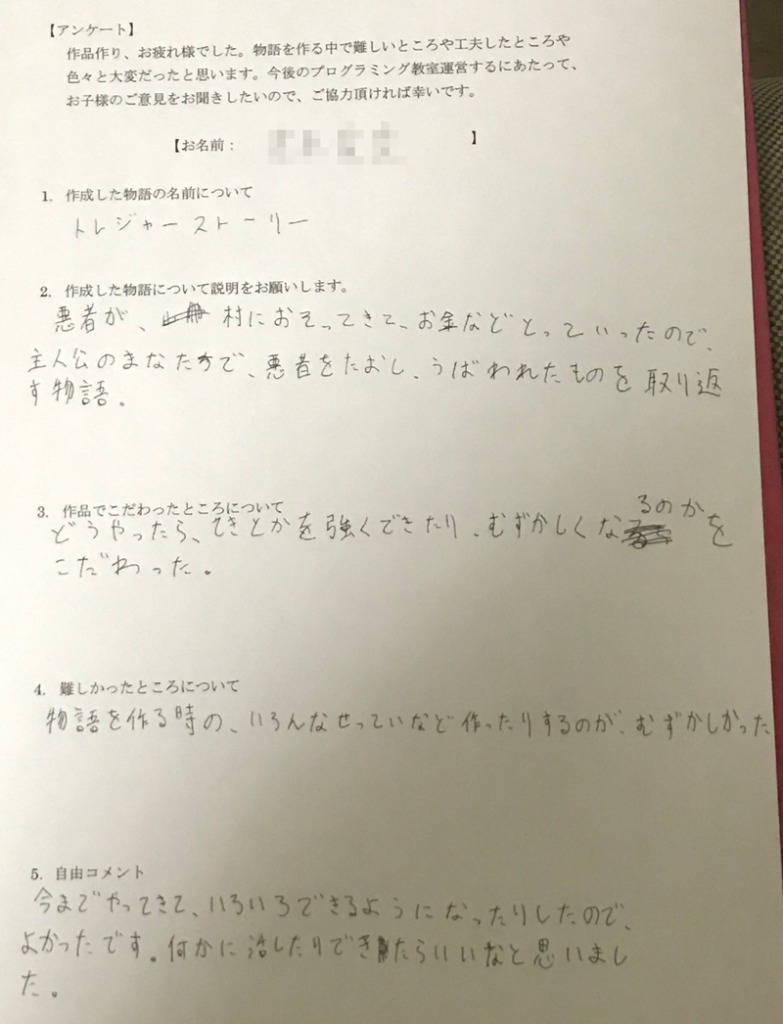 【アンケート】
作品作り、お疲れ様でした。物語を作る中で難しいところや工夫したところや
色々と大変だったと思います。今後のプログラミング教室運営するにあたって、
お子様のご意見をお聞きしたいので、ご協力頂ければ幸いです。
【お名前： 】
1. 作成した物語の名前について
トレジャーストーリー
2. 作成した物語について説明をお願いします。
悪者が、村におそってきて、お金などとっていったので、
主人公のまなたかで、悪者をたおし、うばわれたものを取り返
す物語。
3. 作品でこだわったところについて
どうやったら、てきとかを強くできたり、むずかしくなるのかを
こだわった。
4. 難しかったところについて
物語を作る時の、いろんなせっていなど作ったりするのが、むずかしかった
5. 自由コメント
今までやってきて、いろいろできるようになったりしたので、
よかったです。何かに活したりできたらいいなと思いまし
た。